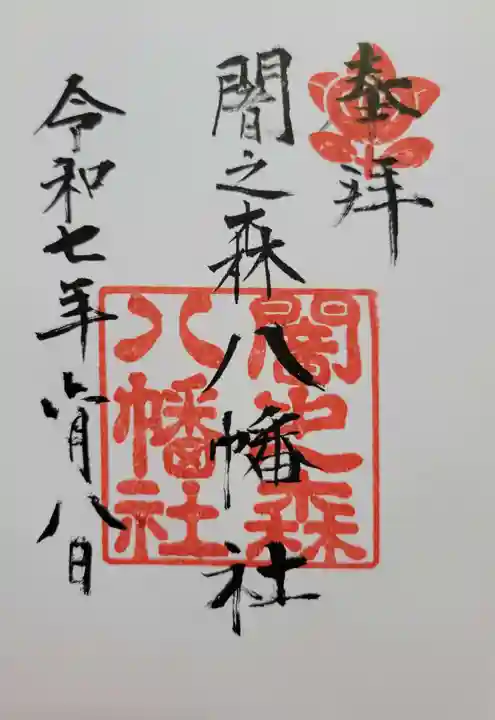 奉拝
闇之森八幡社
令和七年六月八日
闇之森
八幡社